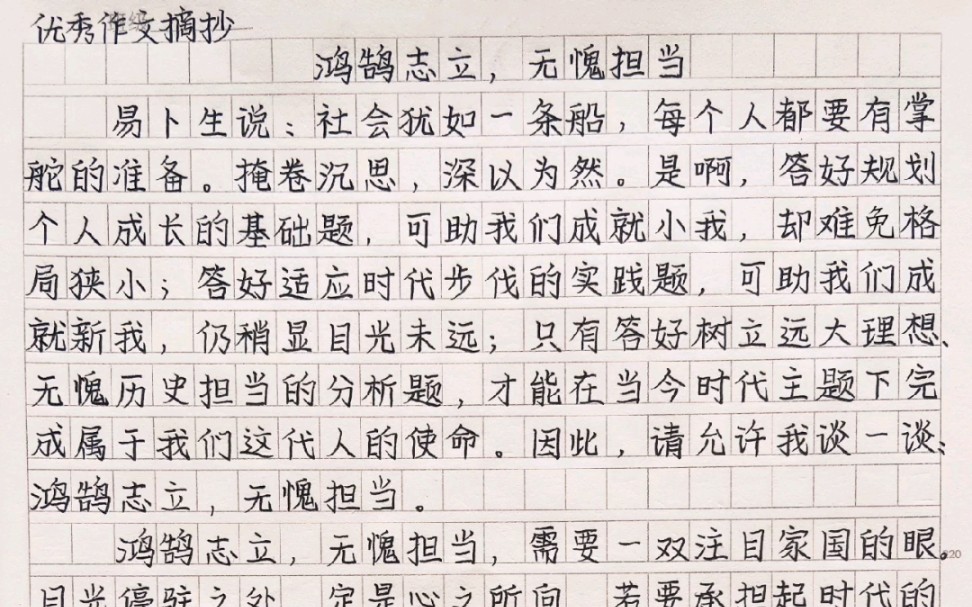 优秀作文摘抄
鸿鹄志立，无愧担当
易卜生说：社会犹如一条船，每个人都要有掌
舵的准备。掩卷沉思，深以为然。是啊，答好规划
个人成长的基础题，可助我们成就小我，却难免格
局狭小；答好适应时代步伐的实践题，可助我们成
就新我，仍稍显目光未远；只有答好树立远大理想、
无愧历史担当的分析题，才能在当今时代主题下完
成属于我们这代人的使命。因此，请允许我谈一谈：
鸿鹄志立，无愧担当。
鸿鹄志立，无愧担当，需要一双注目家国的眼。
目光停驻之处，定是心之所向。若要承担起时代的